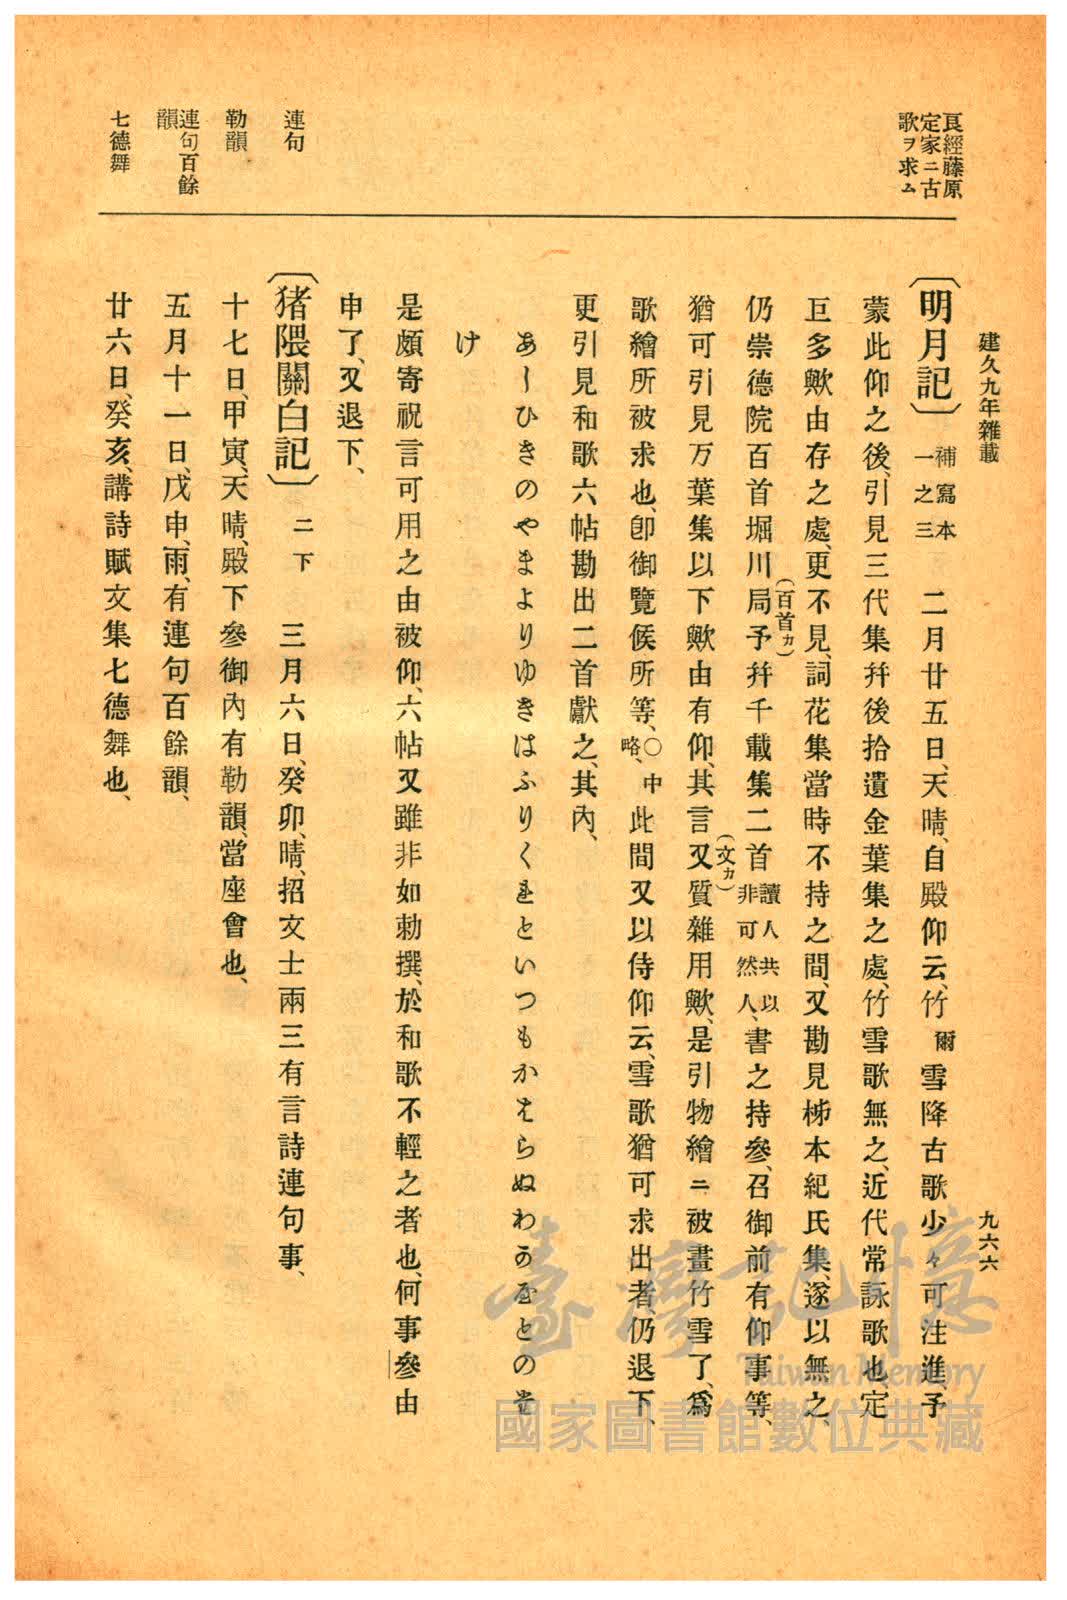 建久九年雜載
九六六
良經藤原
定家ニ古
歌ヲ求ム
〔明月記〕補寫本一之三 二月廿五日、天晴、自殿仰云、竹爾雪降古歌少々可注進、予
蒙此仰之後、引見三代集幷後拾遺金葉集之處、竹雪歌無之、近代常詠歌也、定
巨多歟由存之處、更不見、詞花集當時不持之間、又勘見柹本紀氏集、遂以無之、
仍崇德院百首堀川局(百首カ)予幷千載集二首讀人共以非可然人、書之持參、召御前有仰事等、
猶可引見万葉集以下歟由有仰、其言又(文カ)質雜用歟、是引物繪ニ被畫竹雪了、爲
歌繪所被求也、卽御覽候所等、〇中略、此間又以侍仰云、雪歌猶可求出者、仍退下、
更引見和歌六帖勘出二首獻之、其內、
あしひきのやまよりゆきはふりくれといつもかはらぬわかやとのたけ
是頗寄祝言可用之由被仰、六帖又雖非如勅撰、於和歌不輕之者也、何事參由
申了、又退下、
連句
〔猪隈關白記〕二下 三月六日、癸卯、晴、招文士兩三有言詩連句事、
勒韻
十七日、甲寅、天晴、殿下參御內有勒韻、當座會也、
連句百餘
韻
五月十一日、戊申、雨、有連句百餘韻、
七德舞
廿六日、癸亥、講詩賦文集七德舞也、
臺灣記憶
Taiwan Memory
國家圖書館數位典藏